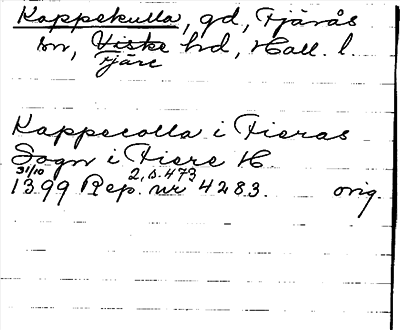 Kappekulla, gd, Fjärås
sn, Viske hd, Hall. l.
Fjäre
Kappecolla i Fieras
Sogn i Fiere H
31/10 2, s. 473
1399 Rep. nr 4283. orig.